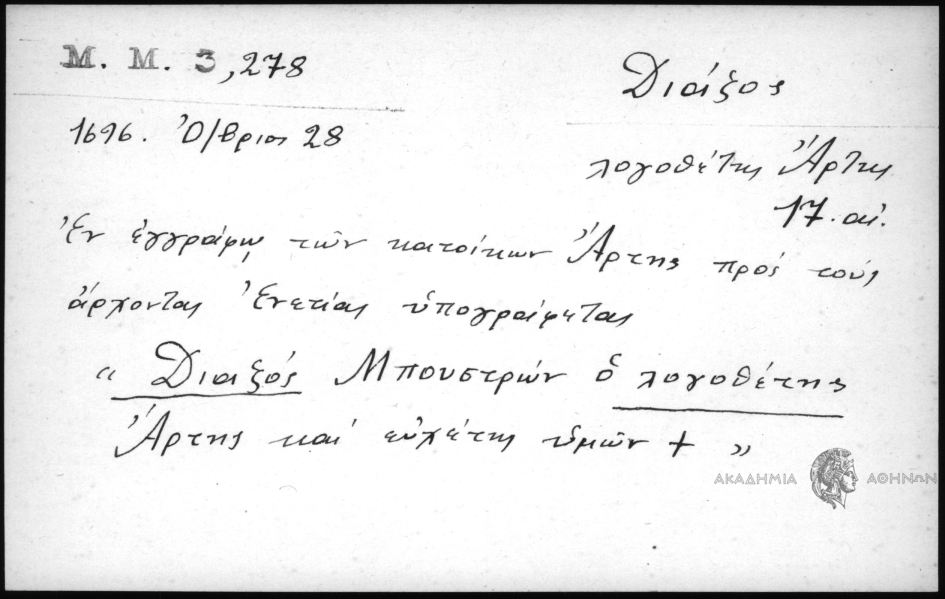 Μ. Μ. 3,278
Διάξος
1696. Ὀ/βριος 28
λογοθέτης Ἄρτης
17. αἰ.
Ἐν ἐγγράφῳ τῶν κατοίκων Ἄρτης πρός τούς
ἄρχοντας Ἐνετίας ὑπογράφεται
" Διαξός Μπουστρών ὁ λογοθέτης
Ἄρτης καί εὐχέτης ὑμῶν + "
ΑΚΑΔΗΜΙΑ ΑΘΗΝΩΝ